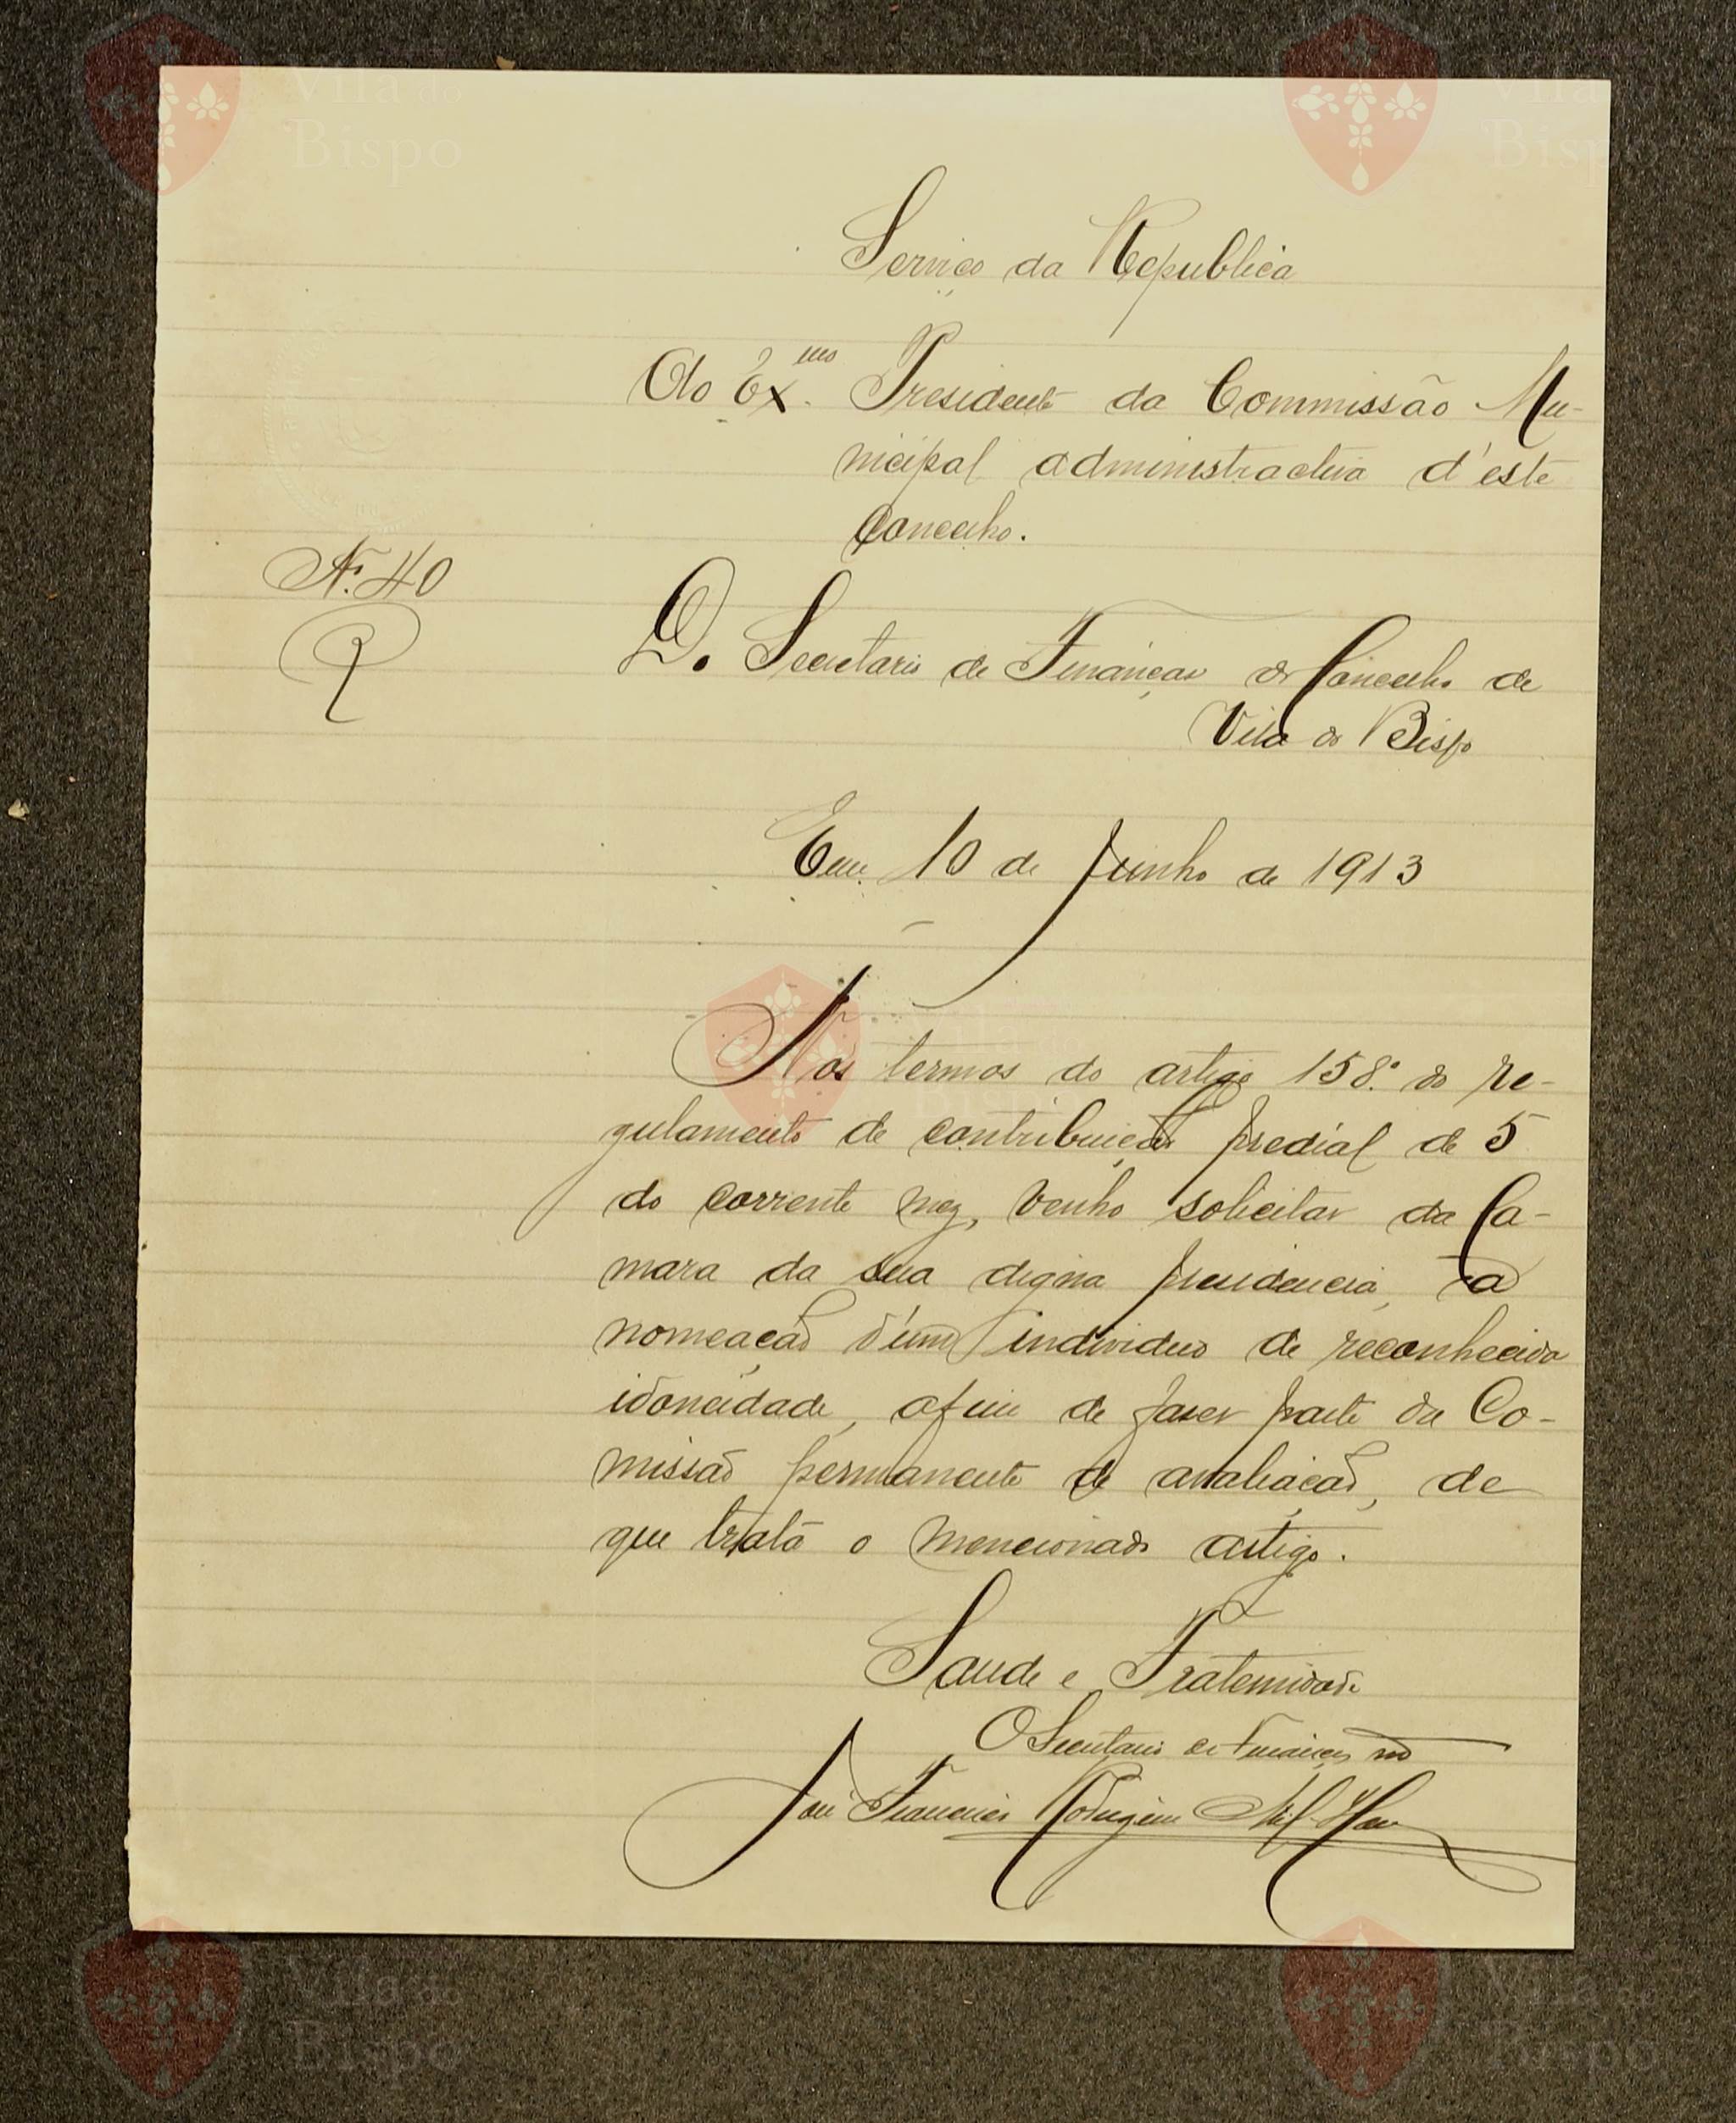 Vila do
Bispo
Vila do
Bispo
Serviço da Republica
Ao Exmo. Presidente da Commissão Mu-
nicipal administractiva d'este
Concelho.
N.º 40
R
D. Secretario de Finanças do Concelho de
Vila do Bispo
Em 10 de Junho de 1913
Nos termos do artigo 158.º do re-
gulamento de contribuição predial de 5
do corrente mez, venho solicitar da Ca-
mara da sua digna presidencia, a
nomeação d'um individuo de reconhecida
idoneidade, afim de fazer parte da Co-
missão permanente de avaliação, de
que trata o mencionado artigo.
Saude e Fraternidade
O Secretario de Finanças
José Francisco Rodrigues
Vila do
Bispo
Vila do
Bispo
Vila do
Bispo